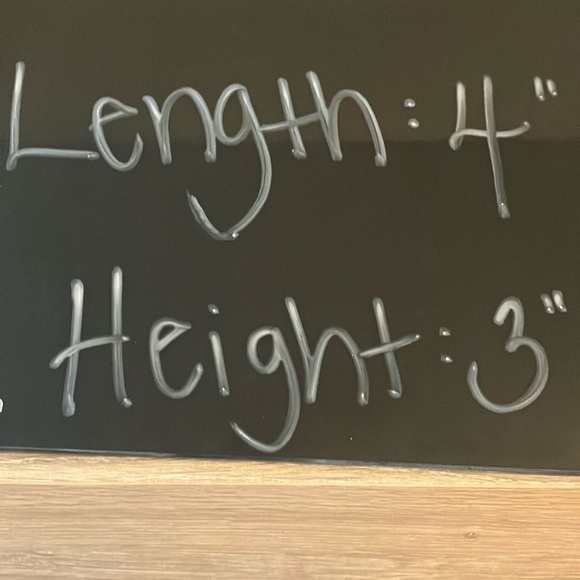 Length: 4"
Height: 3"